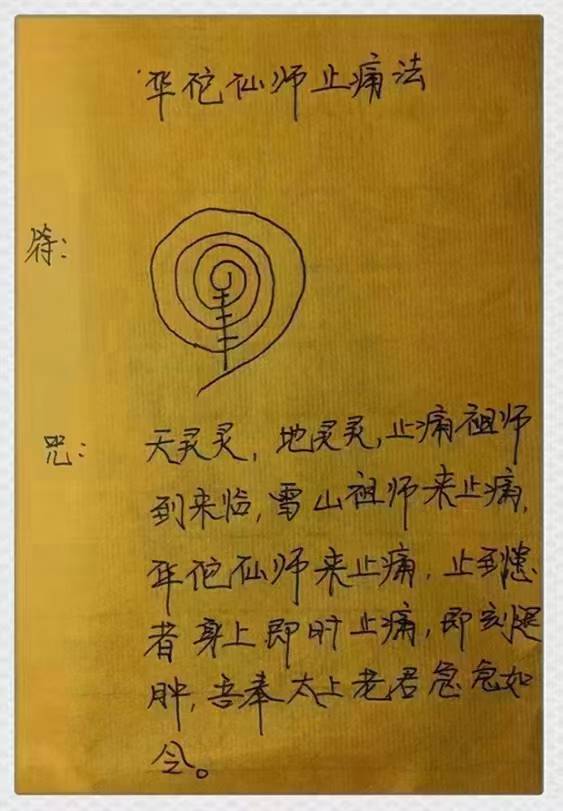 华佗仙师止痛法
符:
咒:
天灵灵，地灵灵，止痛祖师
到来临，雪山祖师来止痛，
华佗仙师来止痛，止到患
者身上即时止痛，即刻退
肿，吾奉太上老君急急如
令。